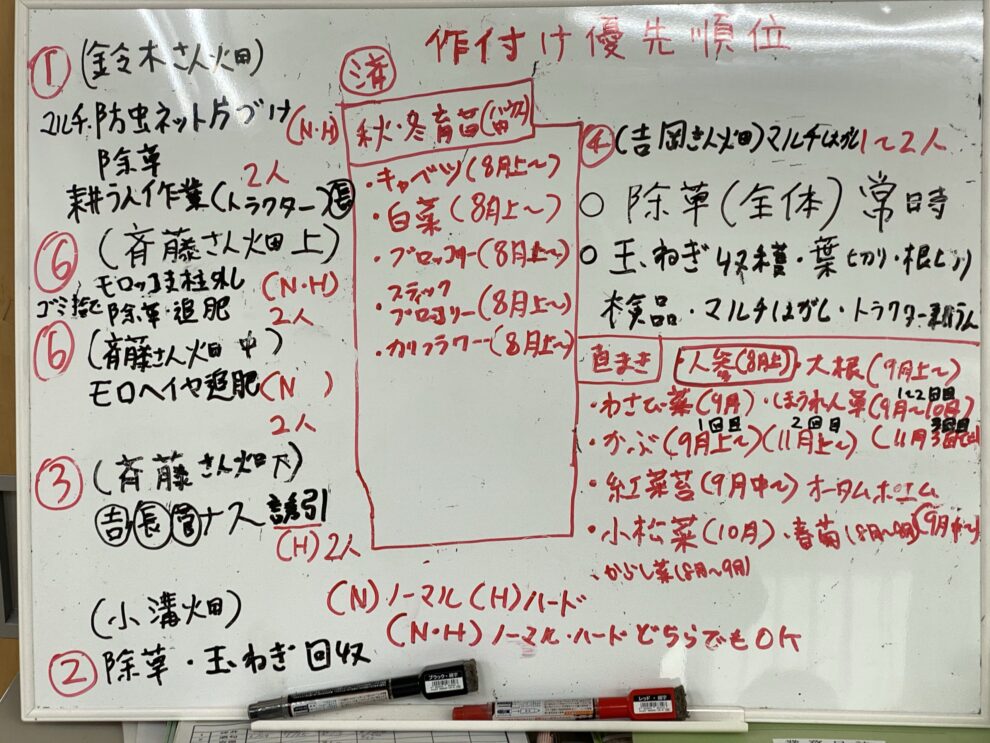 作付け優先順位
① (鈴木さん畑)
マルチ・防虫ネット片づけ
(N・H)
除草
2人
耕うん作業(トラクター)長
⑥ (斉藤さん畑上)
モロッコ支柱外し
(N・H)
ゴミ捨て
除草・追肥
2人
⑥ (斉藤さん畑 中)
モロヘイヤ追肥(N )
2人
③ (斉藤さん畑下)
吉長菅ナス誘引
(H) 2人
(小溝畑)
② 除草・玉ねぎ回収
済
秋・冬育苗
・キャベツ(8月上〜)
・白菜(8月上〜)
・ブロッコリー(8月上〜)
・スティック
ブロッコリー(8月上〜)
・カリフラワー(8月上〜)
④ (吉岡さん畑)マルチはがし1〜2人
○ 除草(全体)常時
○ 玉ねぎ収穫・葉切り・根切り
検品・マルチはがし・トラクター耕うん
直まき 人参(8月上) 大根(9月上〜)
1〜2回目
・わさび菜(9月)・ほうれん草(9月〜10月)
1回目 2回目 3回目
・かぶ(9月上〜)(11月上〜)
・紅菜苔(9月中〜)オータムポエム
・小松菜(10月)・春菊(9月中〜)
・からし菜(8月〜9月)
(N)ノーマル(H)ハード
(N・H)ノーマル・ハードどちらでもOK
ブラック・細字
レッド・細字